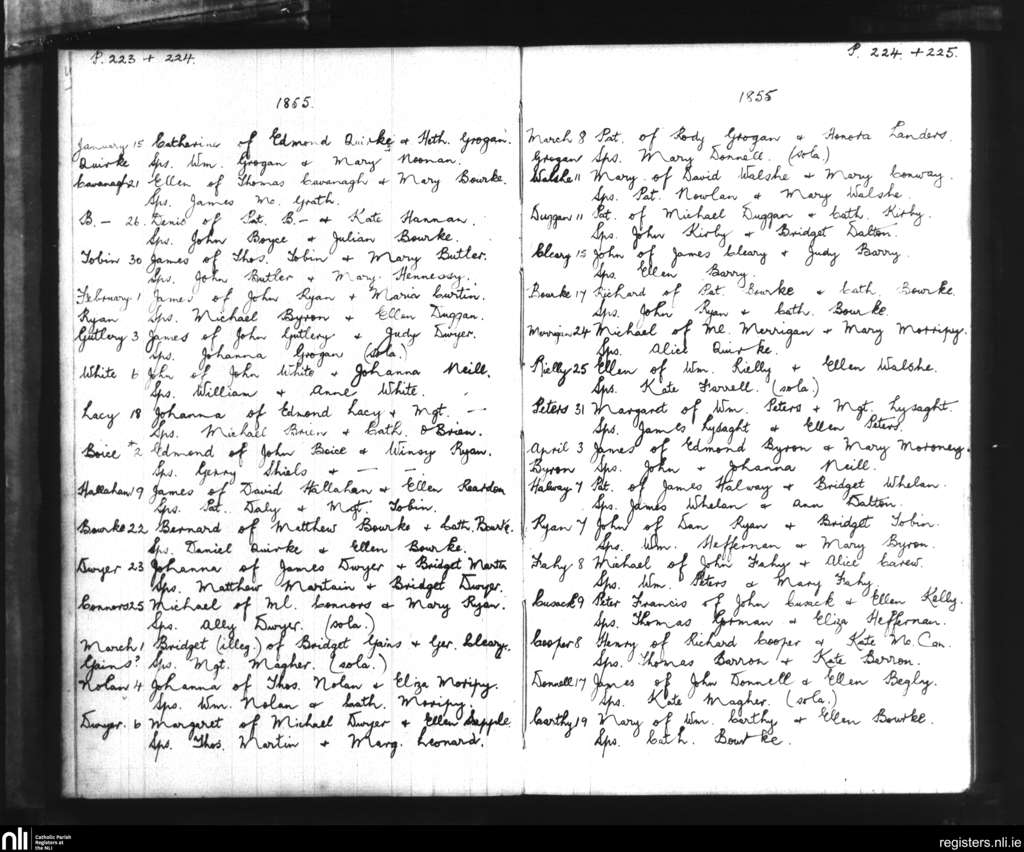 P. 223 + 224.
1855.
January 15 Catherine of Edmond Quirke & Hth. Grogan.
Quirke Sps. Wm. Grogan & Mary Noonan.
Cavanagh 21 Ellen of Thomas Cavanagh & Mary Bourke.
Sps. James Mc. Grath.
B. — 26. Denis of Pat. B— & Kate Hannan.
Sps. John Boyce & Julian Bourke.
Tobin 30 James of Thos. Tobin & Mary Butler.
Sps. John Butler & Mary Hennessy.
February 1 James of John Ryan & Maria Curtin.
Ryan Sps. Michael Byron & Ellen Duggan.
Gutlery 3 James of John Gutlery & Judy Dwyer.
Sps. Johanna Grogan (sola.)
White 6 Jhn of John White & Johanna Neill.
Sps. William & Anne White.
Lacy 18 Johanna of Edmond Lacy & Mgt. —
Sps. Michael Brien & Cath. O'Brien.
Boice 2 Edmond of John Boice & Winny Ryan.
Sps. Gerry Shiels & — —
Hallahan 9 James of David Hallahan & Ellen Rearden
Sps. Pat. Daly & Mgt. Tobin.
Bourke 22 Bernard of Matthew Bourke & Cath. Bourke.
Sps. Daniel Quirke & Ellen Bourke.
Dwyer 23 Johanna of James Dwyer & Bridget Martn
Sps. Matthew Martain & Bridget Dwyer.
Connors 25 Michael of Ml. Connors & Mary Ryan.
Sps. Ally Dwyer. (sola.)
March 1 Bridget (illeg.) of Bridget Gains & Ger. Cleary.
Gains? Sps. Mgt. Magher. (sola.)
Nolan 4 Johanna of Thos. Nolan & Eliza Moripy.
Sps. Wm. Nolan & Cath. Moripy.
Dwyer. 6 Margaret of Michael Dwyer & Ellen Supple
Sps. Thos. Martin & Marg. Leonard.
P. 224. + 225.
1855
March 8 Pat. of Rody Grogan & Honora Landers.
Grogan Sps. Mary Donnell. (sola.)
Walshe 11 Mary. of David Walshe & Mary Conway.
Sps. Pat. Nowlan & Mary Walshe.
Duggan 11 Pat. of Michael Duggan & Cath. Kirby.
Sps. John Kirby & Bridget Dalton.
Cleary 15 John of James Cleary & Judy Barry.
Sps. Ellen Barry.
Bourke 17 Richard of Pat. Bourke & Cath. Bourke.
Sps. John Ryan & Cath. Bourke.
Merrigan 24 Michael of Ml. Merrigan & Mary Morripy.
Sps. Alice Quirke.
Rielly 25 Ellen of Wm. Rielly & Ellen Walshe.
Sps. Kate Farrell. (sola.)
Peters 31 Margaret of Wm. Peters & Mgt. Lysaght.
Sps. James Lysaght & Ellen Peters.
April 3 James of Edmond Byron & Mary Moroney.
Byron Sps. John & Johanna Neill.
Halway 7 Pat. of James Halway & Bridget Whelan.
Sps. James Whelan & Ann Dalton.
Ryan 7 John of Dan Ryan & Bridget Tobin.
Sps. Wm. Heffernan & Mary Byron.
Fahy 8 Michael of John Fahy & Alice Carew.
Sps. Wm. Peters & Mary Fahy.
Cusack 9 Peter Francis of John Cusack & Ellen Kelly.
Sps. Thomas Gorman & Eliza Heffernan.
Cooper 8 Henry of Richard Cooper & Kate Mc. Can.
Sps. Thomas Barron & Kate Barron.
Donnell 17 James of John Donnell & Ellen Begly.
Sps. Kate Magher. (sola.)
Carthy 19 Mary of Wm. Carthy & Ellen Bourke.
Sps. Cath. Bourke.
nli Catholic Parish
Registers at
the NLI
registers.nli.ie